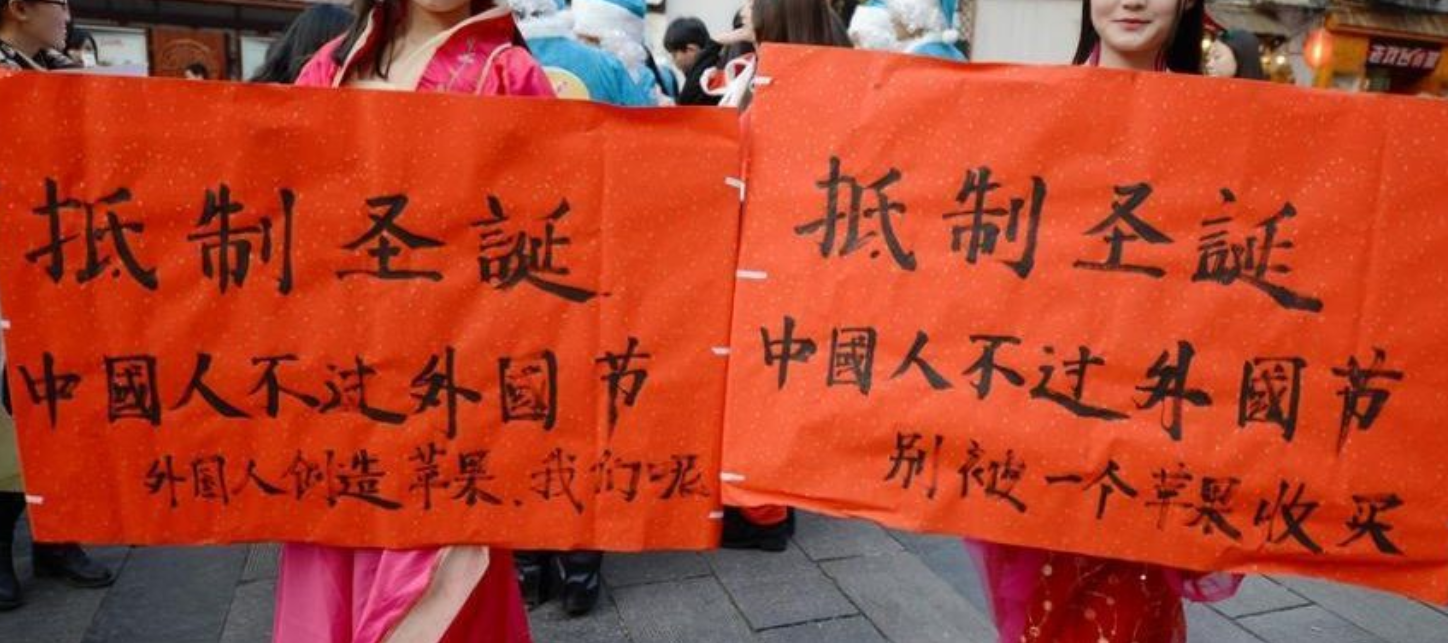 抵制圣誕
中國人不过外國节
外國人创造苹果,我们呢
抵制圣誕
中國人不过外國节
别被一个苹果收买